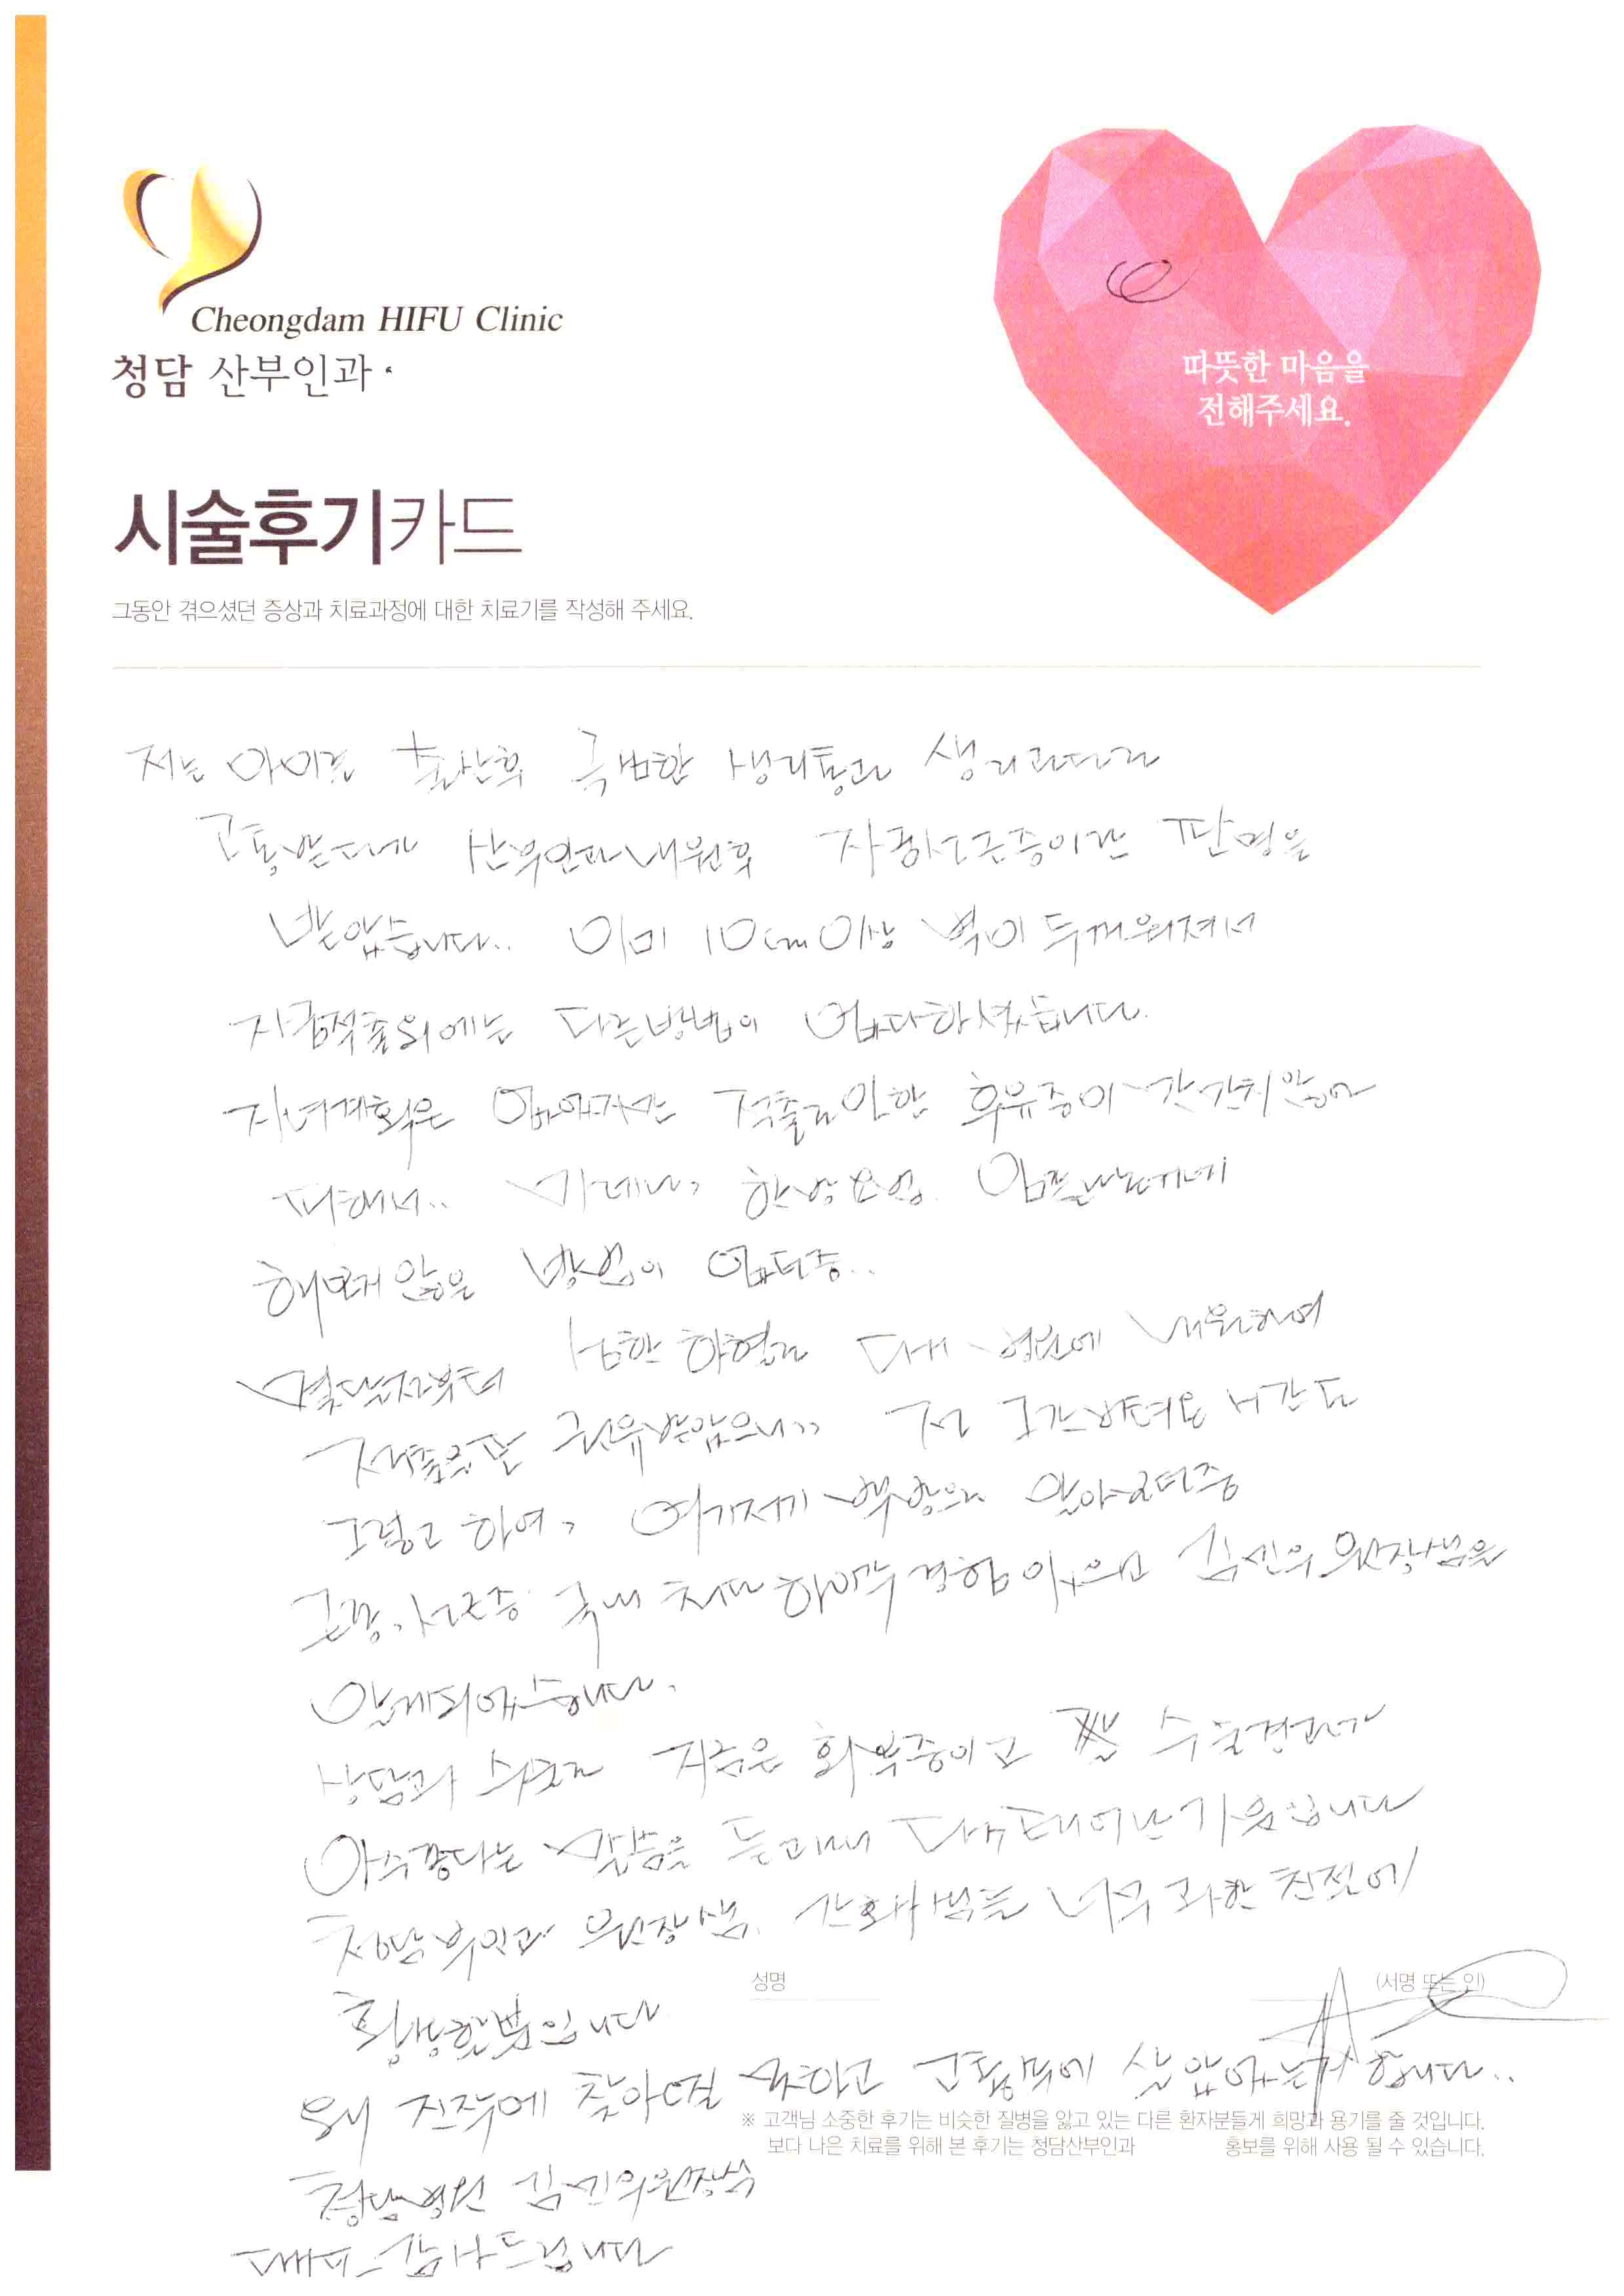 Cheongdam HIFU Clinic
청담 산부인과
따뜻한 마음을
전해주세요.
시술후기카드
그동안 겪으셨던 증상과 치료과정에 대한 치료기를 작성해 주세요.
저는 아이를 출산후 극심한 생리통과 생리과다로
고통받다가 산부인과 내원후 자궁선근증이란 판명을
받았습니다.. 이미 10cm이상 벽이 두꺼워져서
자궁적출외에는 다른방법이 없다하셨습니다.
자녀계획은 없었지만 적출로인한 후유증이 만만치않을
듯해서.. 미레나, 한방요법, 임플라논까지
해보지 않은 방법이 없던중..
몇달전부터 심한 하혈로 대 병원에 내원하여
적출을 권유받았으나.. 전
그렇고 하여, 여기저기 백방으로 알아보던중
근종, 선근증 국내 최다 하이푸 경험 있으신 김민우 원장님을
알게되었습니다.
상담과 수술로 지금은 회복중이고 수술결과가
아주좋다는 말씀을 듣고나니 다시태어난 기분입니다
청담산부인과 원장님, 간호사님들 너무 과한 친절에
성명
(서명 또는 인)
황송할뿐입니다
왜 진작에 찾아오질 못하고 고통속에 살았었는지 합니다..
※ 고객님 소중한 후기는 비슷한 질병을 앓고 있는 다른 환자분들게 희망과 용기를 줄 것입니다.
보다 나은 치료를 위해 본 후기는 청담산부인과 홍보를 위해 사용 될 수 있습니다.
청담병원 김민우원장님
대단히 감사드립니다